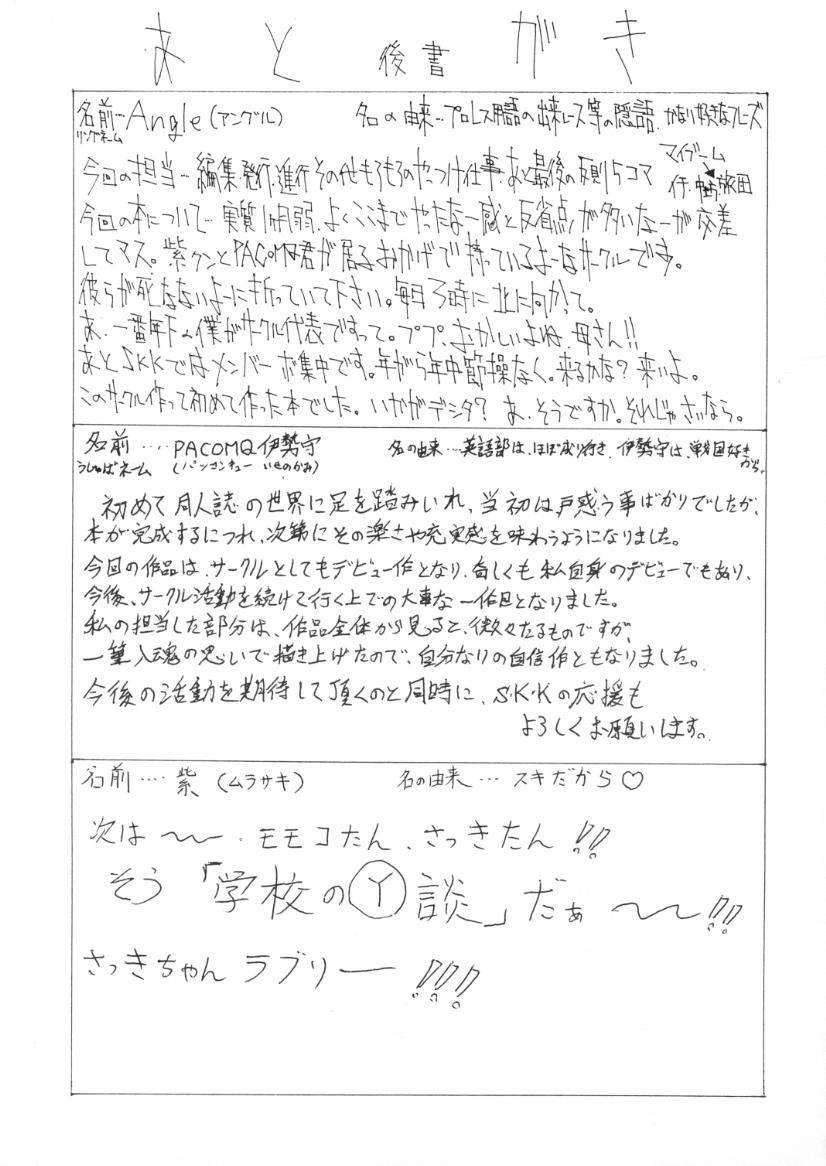 あとがき
後書
名前…Angle(アングル)
リングネーム
名の由来…プロレス用語の出来レース等の隠語.かなり好きなフレーズ
今回の担当…編集発行.進行その他もろもろのやっつけ仕事.あと最後の反則5コマ
マイブーム
今回の本について…実質1ヶ月弱.よくここまでやったなー感と反省点が多いなーが交差
してマス。紫クンとPACOMQ君が居るおかげで持っているよーなサークルです。
彼らが死なないよーに祈っていて下さい。毎日3時に北に向かって。
あ.一番年下の僕がサークル代表ですって。ププ.おかしいよね.母さん!!
あとSKKではメンバー募集中です。年がら年中節操なく。来るかな?来いよ。
このサークル作って初めて作った本でした。いかがデシタ?あ.そうですか。それじゃさいなら。
名前‥‥PACOMQ伊勢守
うしゅばネーム
(パッコンキュー いせのかみ)
名の由来…英語部は、ほぼ成り行き.伊勢守は、戦国好きだから。
初めて同人誌の世界に足を踏みいれ、当初は戸惑う事ばかりでしたが、
本が完成するにつれ、次第にその楽さや充実感を味わうようになりました。
今回の作品は、サークルとしてもデビュー作となり、奇しくも私自身のデビューでもあり、
今後、サークル活動を続けて行く上での大事な一作目となりました。
私の担当した部分は、作品全体から見ると、微々たるものですが、
一筆入魂の思いで描き上げたので、自分なりの自信作ともなりました。
今後の活動を期待して頂くのと同時に、S・K・Kの応援も
よろしくお願いします。
名前‥‥紫(ムラサキ)
名の由来…スキだから♡
次は〜〜.モモコたん、さっきたん!!
そう「学校のⓎ談」だぁ〜〜!!
さっきちゃんラブリー!!!